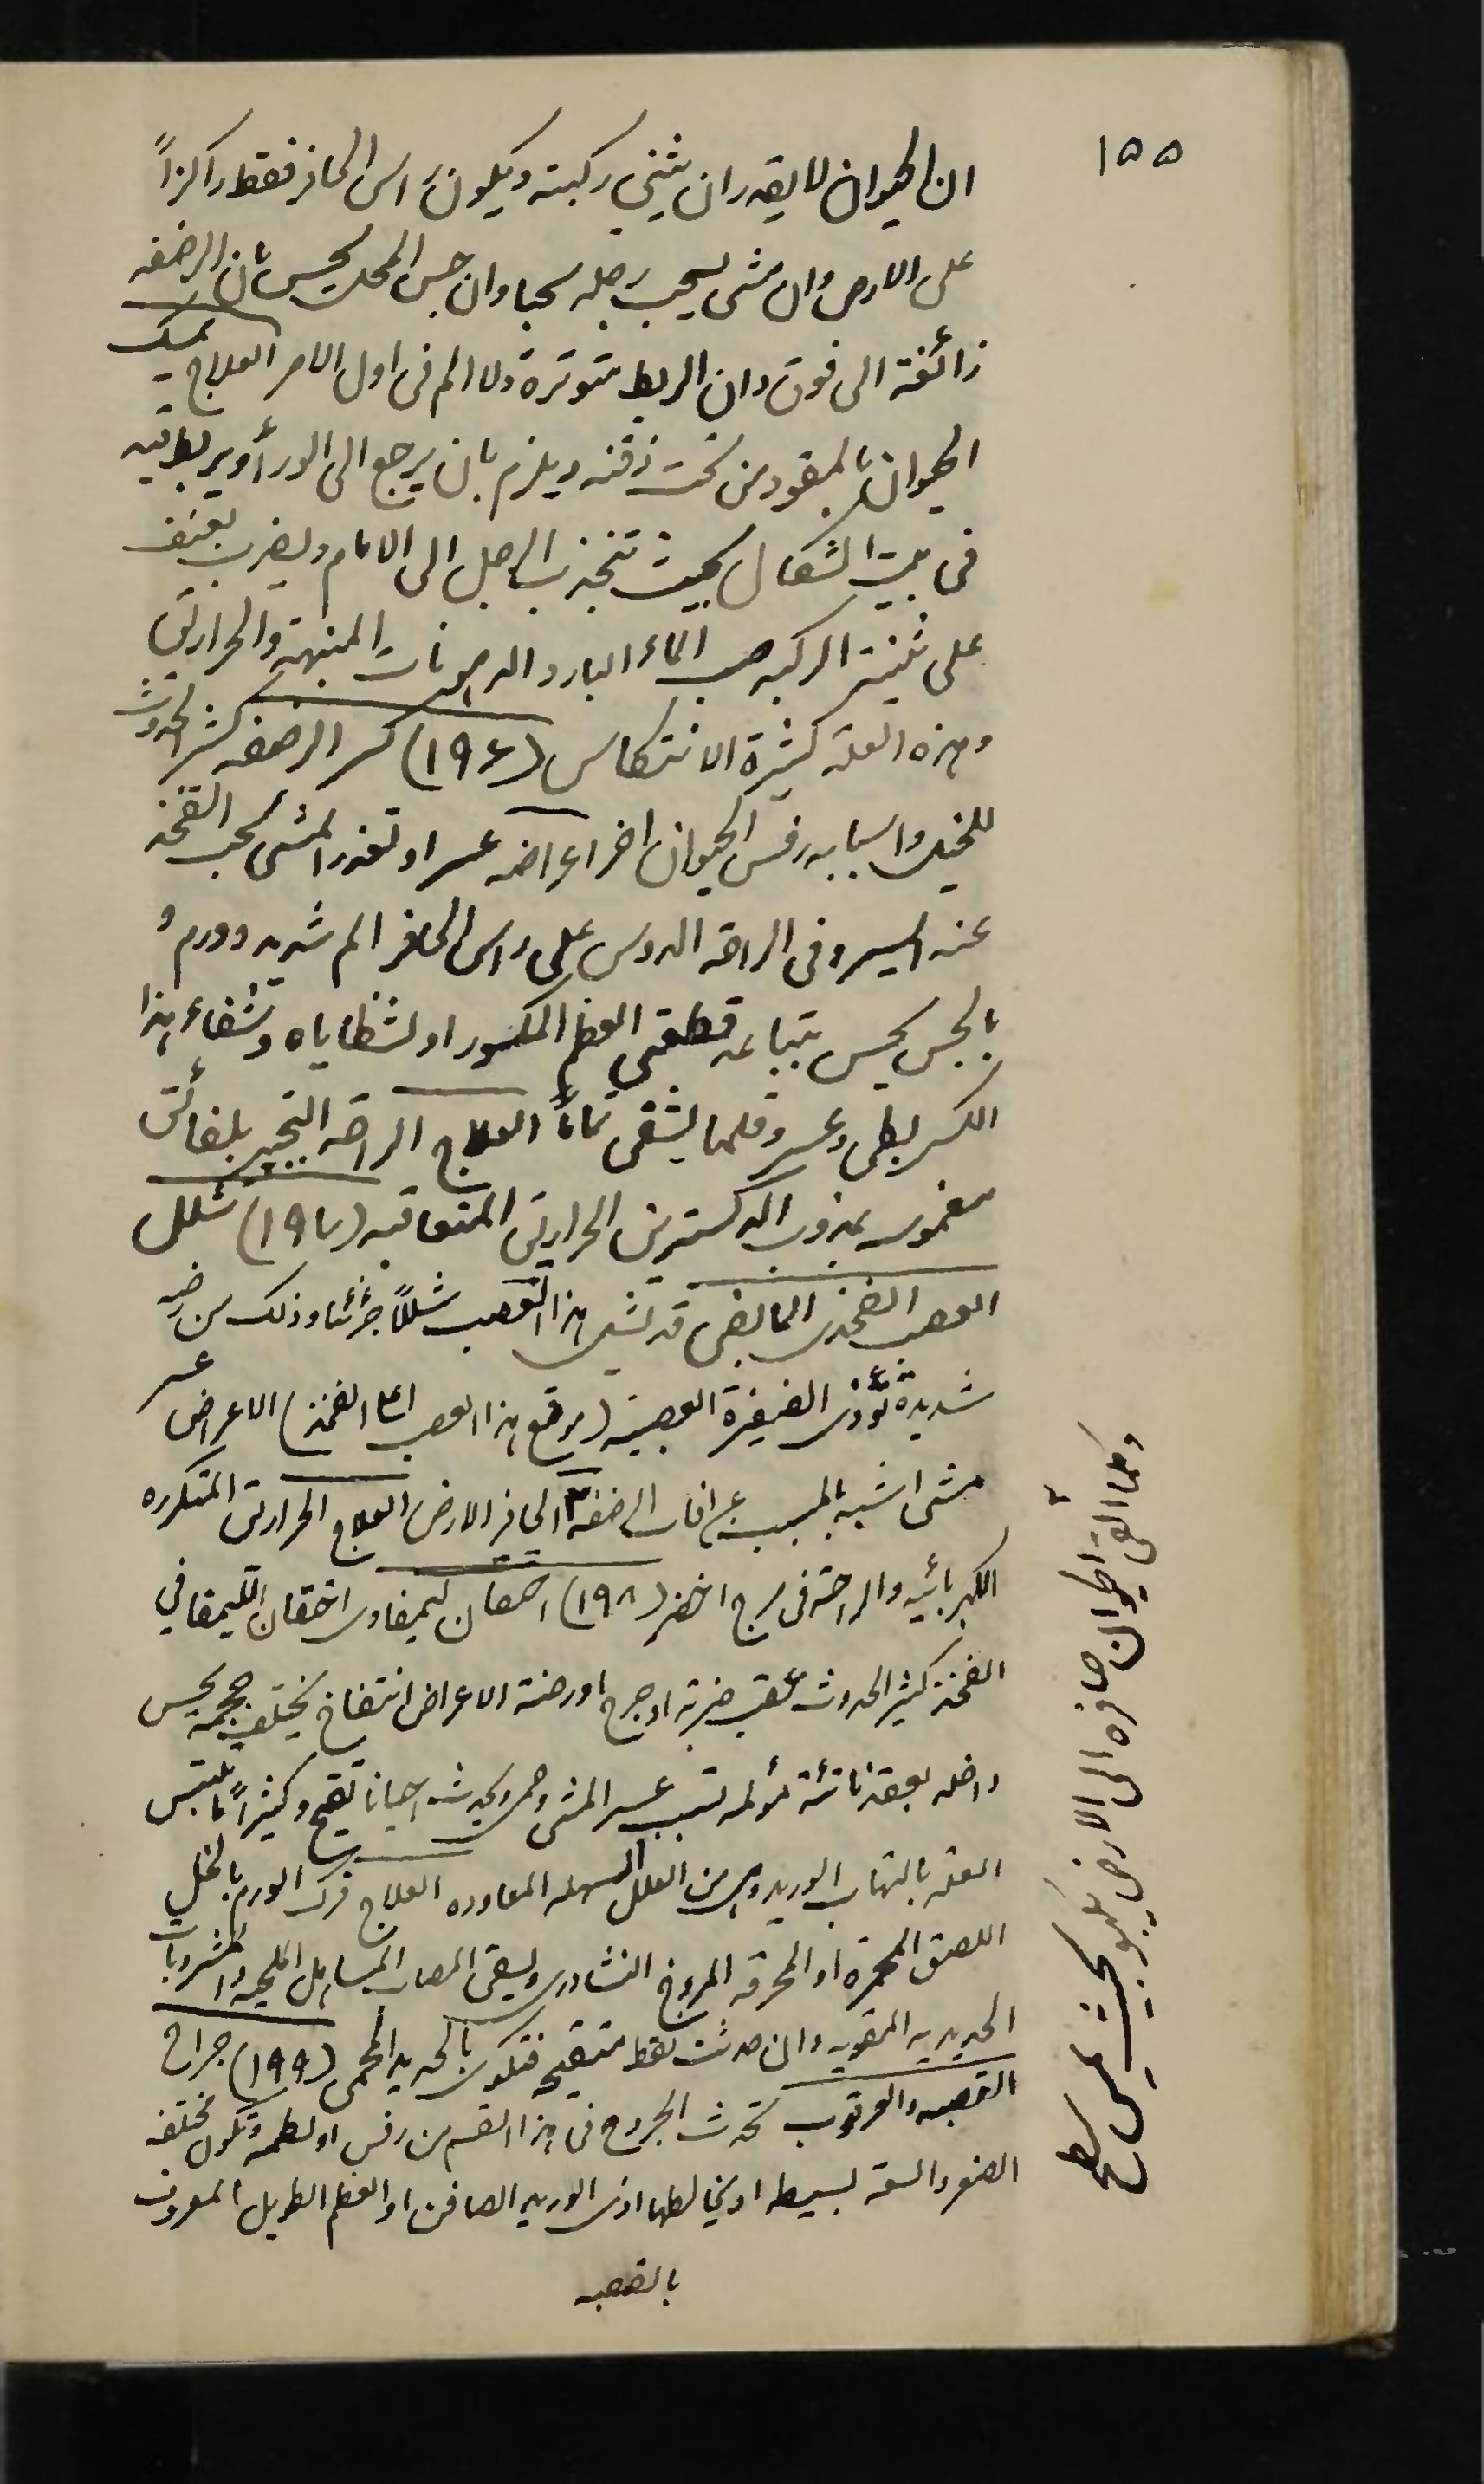 ١٥٥
ان الحيوان لا يقدر ان يثني ركبته ويكون راس الحافر فقط راكزاً
على الارض وان مشى يسحب رجله سحبا وان جس المحل يحس بان الرضفه
زائغة الى فوق وان الربط متوترة ولا الم في اول الامر العلاج يمسك
الحيوان بالمقود من تحت ذقنه ويلزم بان يرجع الى الورأ ويربط
في بيت الشكال بحيث تنجذب الرجل الى الامام ويضرب بعنف
على ثنية الركبه صب الماء البارد الدهونات المنبهة والحراريق
وهذه العلة كثيرة الانتكاس (١٩٦) كسر الرضفه كثير الحدوث
للخيل واسبابه رفس الحيوان اخر اعراضه عسر او تعذر المشي سحب الفخذ
عند السير وفي الراحه الدوس على راس الحافر الم شديد وورم و
بالجس يحس بتباعد قطعتي العظم المكسور او لشظاياه وشفاء هذا
الكسر بطي وعسر وقلما يشفى تماماً العلاج الراحه التجبير بلفائق
مغموسه بمذوب الدكسترين الحراريق المتعاقبه (١٩٧) شلل
العصب الفخذي المابضي قد يشل هذا العصب شللاً جزئيا وذلك من ضربه
شديدة تؤذي الضفيرة العصبية (موقع هذا العصب اعلى الفخذ) الاعراض عسر
مشى اشبه بالمسبب عن افات الرضفة الحافر الارض العلاج الحراريق المتكرره
الكهربائيه والراحة في مرج اخضر (١٩٨) احتقان ليمفاوي احتقان الليمفا في
الفخذ كثير الحدوث عقب ضربة او جرح او رضة الاعراض انتفاخ يختلف حجمه يحس
داخله بعقد ناتئة مؤلمه تسبب عسر المشى وحمى ويحدث احيانا تقيح وكثيراً ما تلتبس
العله بالتهاب الوريد وهي من العلل السهله المعاوده العلاج فرك الورم بالخل
اللصق المحمرة او المحرقه المروخ النشادري ويسقى المصاب المساهل الملحيه والمشروبات
الحديديه المقويه وان حدثت نقط متقيحه فتكوى بالحديد المحمى (١٩٩) جراح
القصبه والعرقوب تحدث الجروح في هذا القسم من رفس او لطمه وتكون مختلفه
الصغر والسعة بسيطه او يخالطها اذى الوريد الصافن او العظم الطويل المعروف
بالقصبه
وكلما القى الحيوان حافره الى الارض يكبو بحيث يمس سطح